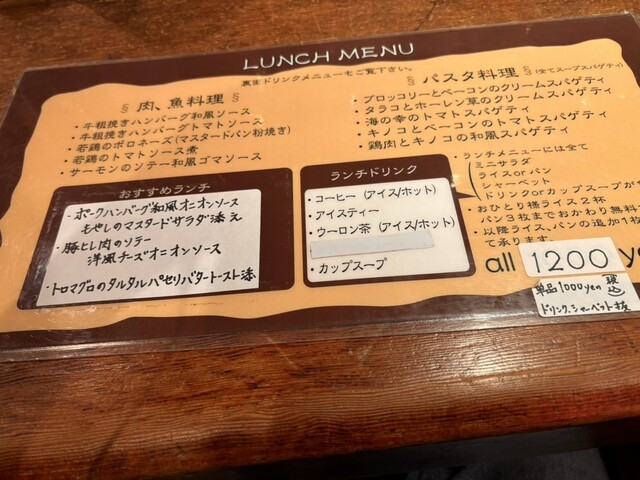 LUNCH MENU
裏面ドリンクメニューをご覧下さい。
§ 肉、魚料理 §
・牛粗挽きハンバーグ和風ソース
・牛粗挽きハンバーグトマトソース
・若鶏のポロネーズ(マスタードパン粉焼き)
・若鶏のトマトソース煮
・サーモンのソテー和風ゴマソース
§ パスタ料理 § (全てスープスパゲティ)
・ブロッコリーとベーコンのクリームスパゲティ
・タラコとホーレン草のクリームスパゲティ
・海の幸のトマトスパゲティ
・キノコとベーコンのトマトスパゲティ
・鶏肉とキノコの和風スパゲティ
おすすめランチ
・ポークハンバーグ和風オニオンソース
もやしのマスタードサラダ添え
・豚ヒレ肉のソテー
洋風チーズオニオンソース
・トロマグロのタルタルパセリバタートースト添
ランチドリンク
・コーヒー (アイス/ホット)
・アイスティー
・ウーロン茶 (アイス/ホット)
・カップスープ
ランチメニューには全て
ミニサラダ
ライスorパン
シャーベット
ドリンクorカップスープが
・おひとり様ライス2杯
パン3枚までおかわり無料
・以降ライス、パンの追加1
て承ります。
all 1200 y
単品1000yen 税込
ドリンク、シャーベット抜